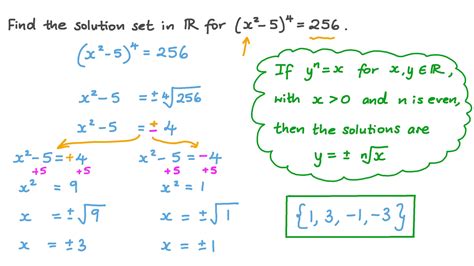 Find the solution set in ℝ for (x²-5)⁴ = 256.
(x²-5)⁴ = 256
x²-5 = ±⁴√256
x²-5 = ±4
x²-5 = +4
+5 +5
x² = 9
x = ±√9
x = ±3
x²-5 = -4
+5 +5
x² = 1
x = ±√1
x = ±1
If yⁿ=x for x,y∈ℝ,
with x>0 and n is even,
then the solutions are
y = ± ⁿ√x
{1, 3, -1, -3}